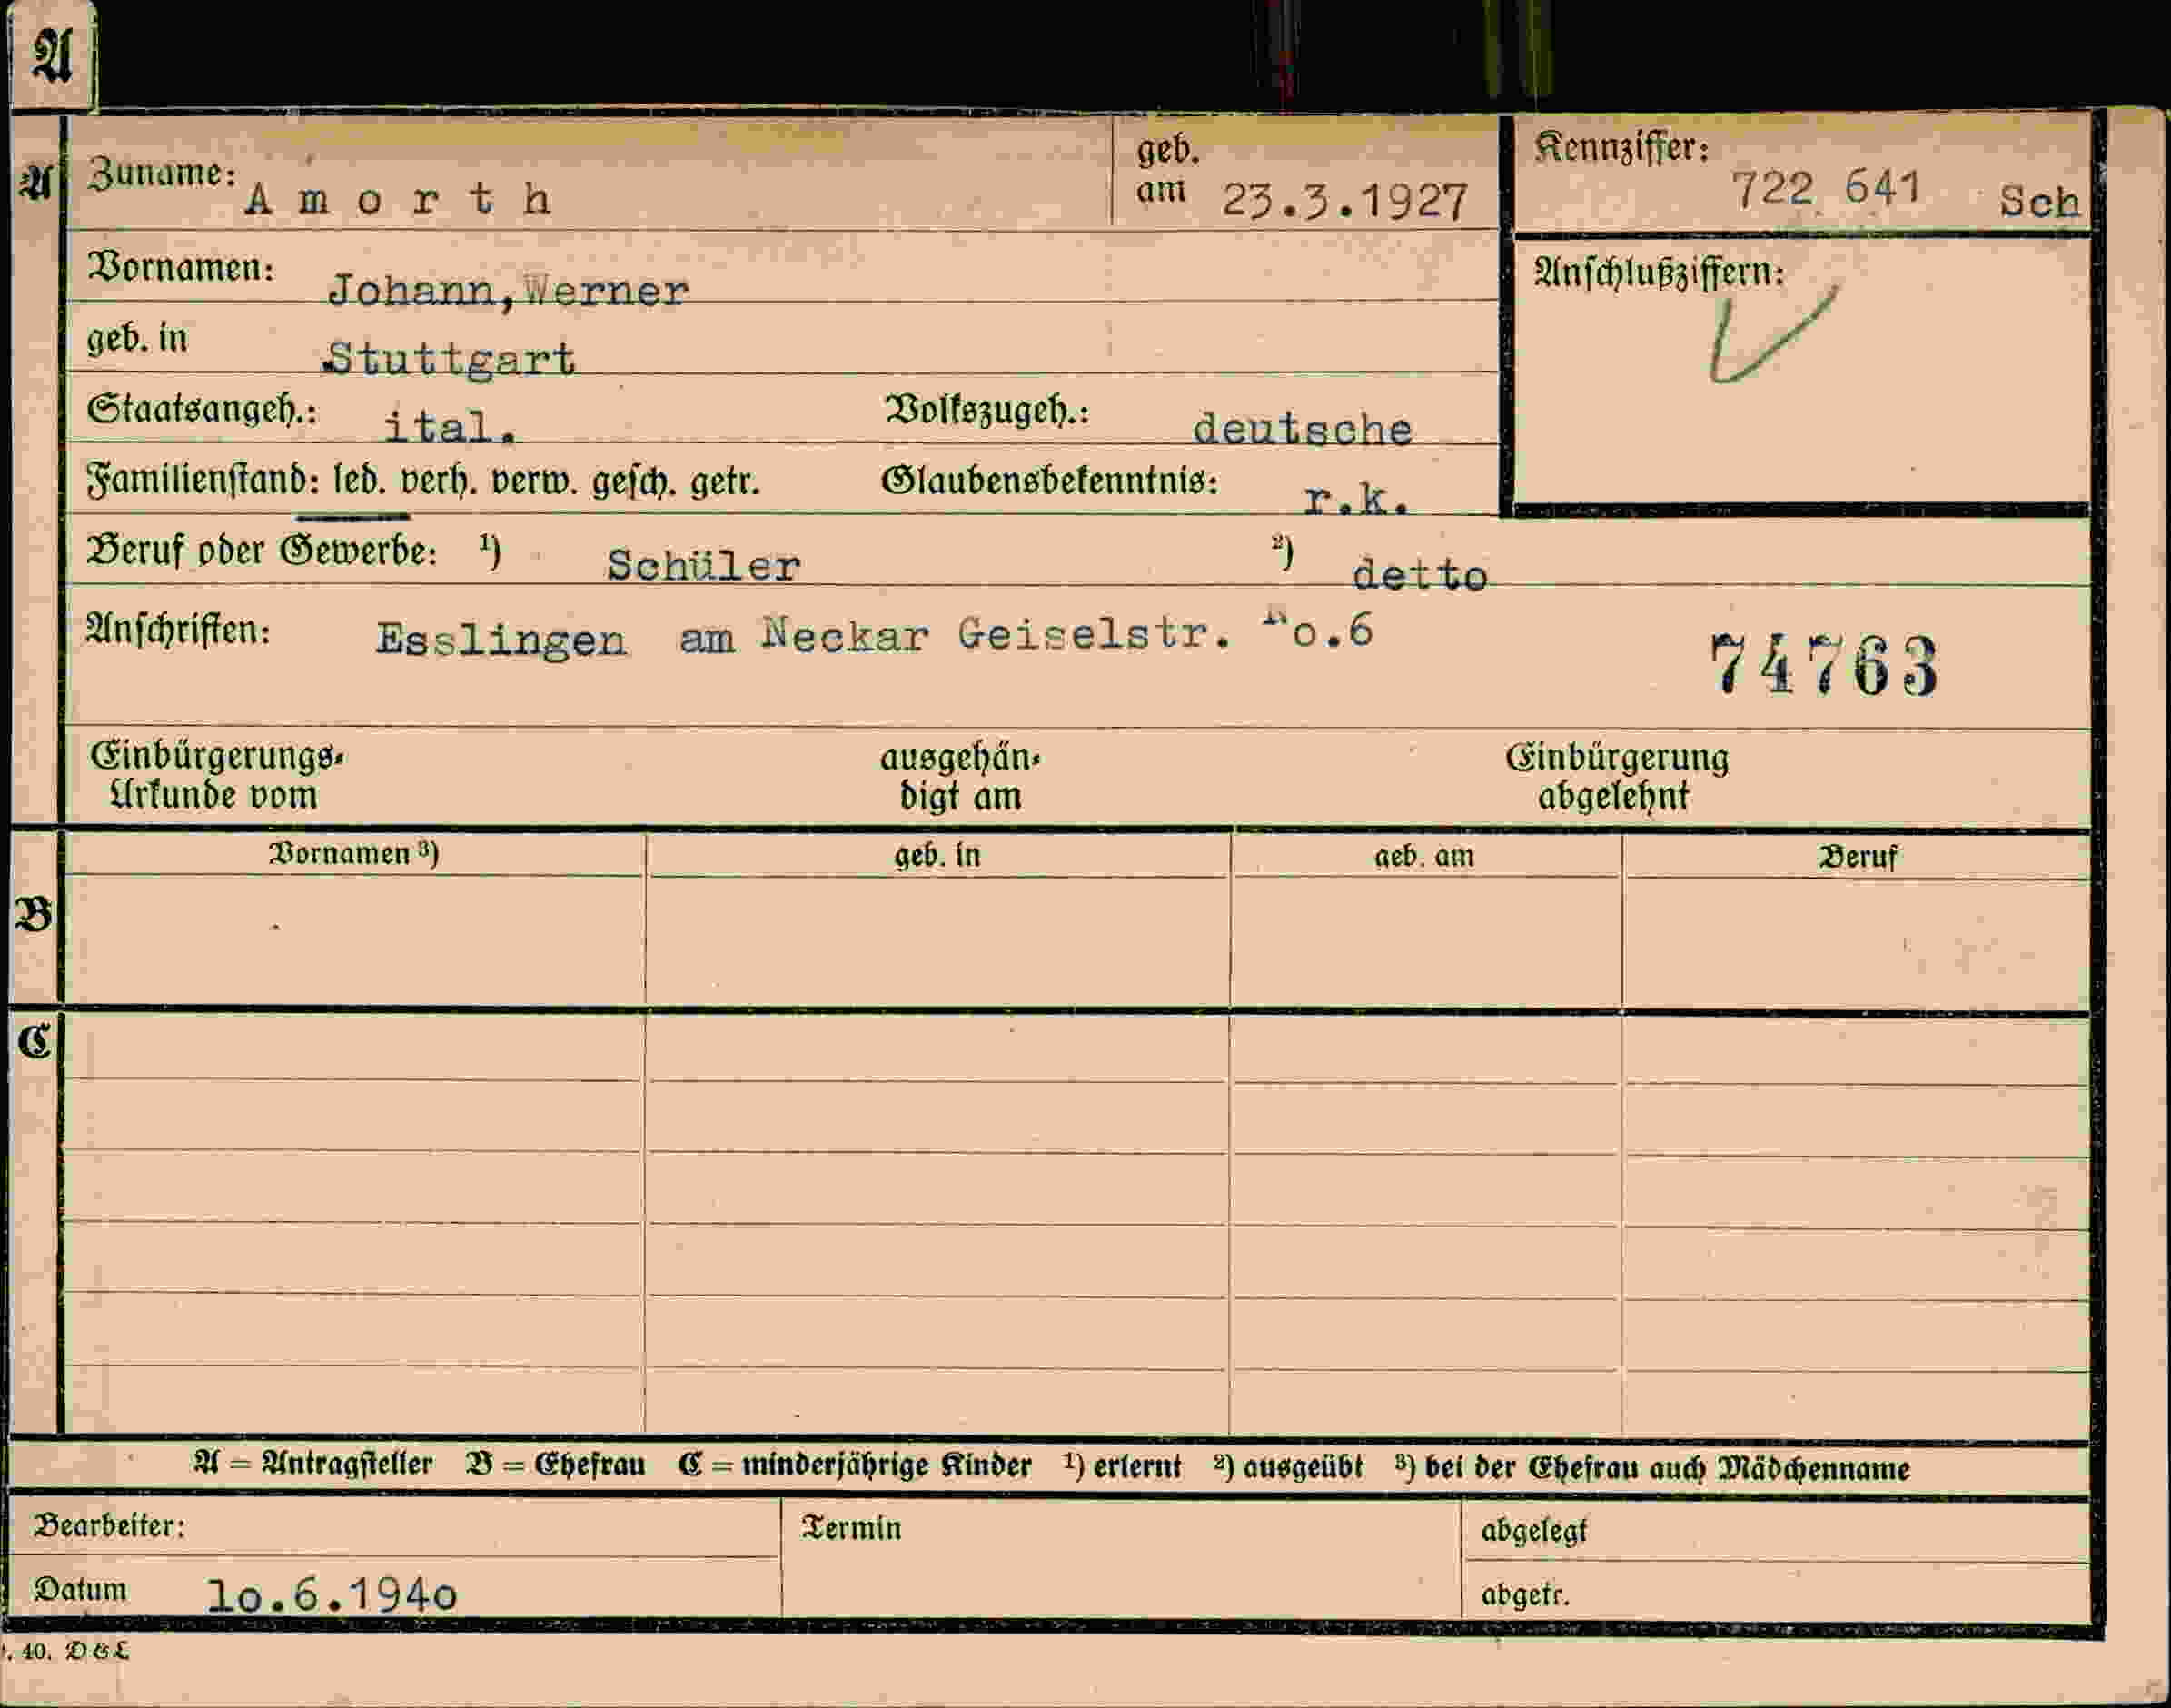 A
A Zuname: Amorth geb. am 23.3.1927 Kennziffer: 722 641 Sch
Vornamen: Johann,Werner Anschlußziffern:
geb. in Stuttgart
Staatsangeh.: ital. Volkszugeh.: deutsche
Familienstand: led. verh. verw. gesch. getr. Glaubensbekenntnis: r.k.
Beruf oder Gewerbe: 1) Schüler 2) detto
Anschriften: Esslingen am Neckar Geiselstr. No.6
74763
Einbürgerungs-Urkunde vom ausgehän-digt am Einbürgerung abgelehnt
Vornamen 3) geb. in geb. am Beruf
B
C
A = Antragsteller B = Ehefrau C = minderjährige Kinder 1) erlernt 2) ausgeübt 3) bei der Ehefrau auch Mädchenname
Bearbeiter: Termin abgelegt
Datum 10.6.1940 abgetr.
. 40. D&L